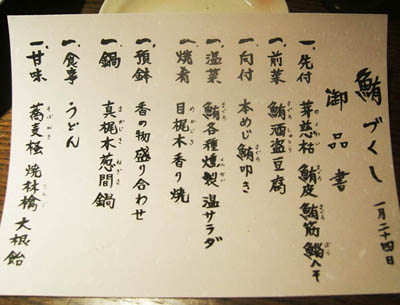 鮪づくし
一月二十四日
御品書
一、先付 芽慈姑 鮪皮 鮪筋 鯔ヘソ
一、前菜 鮪酒盗豆腐
一、向付 本めじ鮪叩き
一、温菜 鮪各種燻製 温サラダ
一、焼肴 目梶木香り焼
一、預鉢 香の物盛り合わせ
一、鍋 真梶木葱間鍋
一、食事 うどん
一、甘味 蕎麦極 焼林檎 大根飴